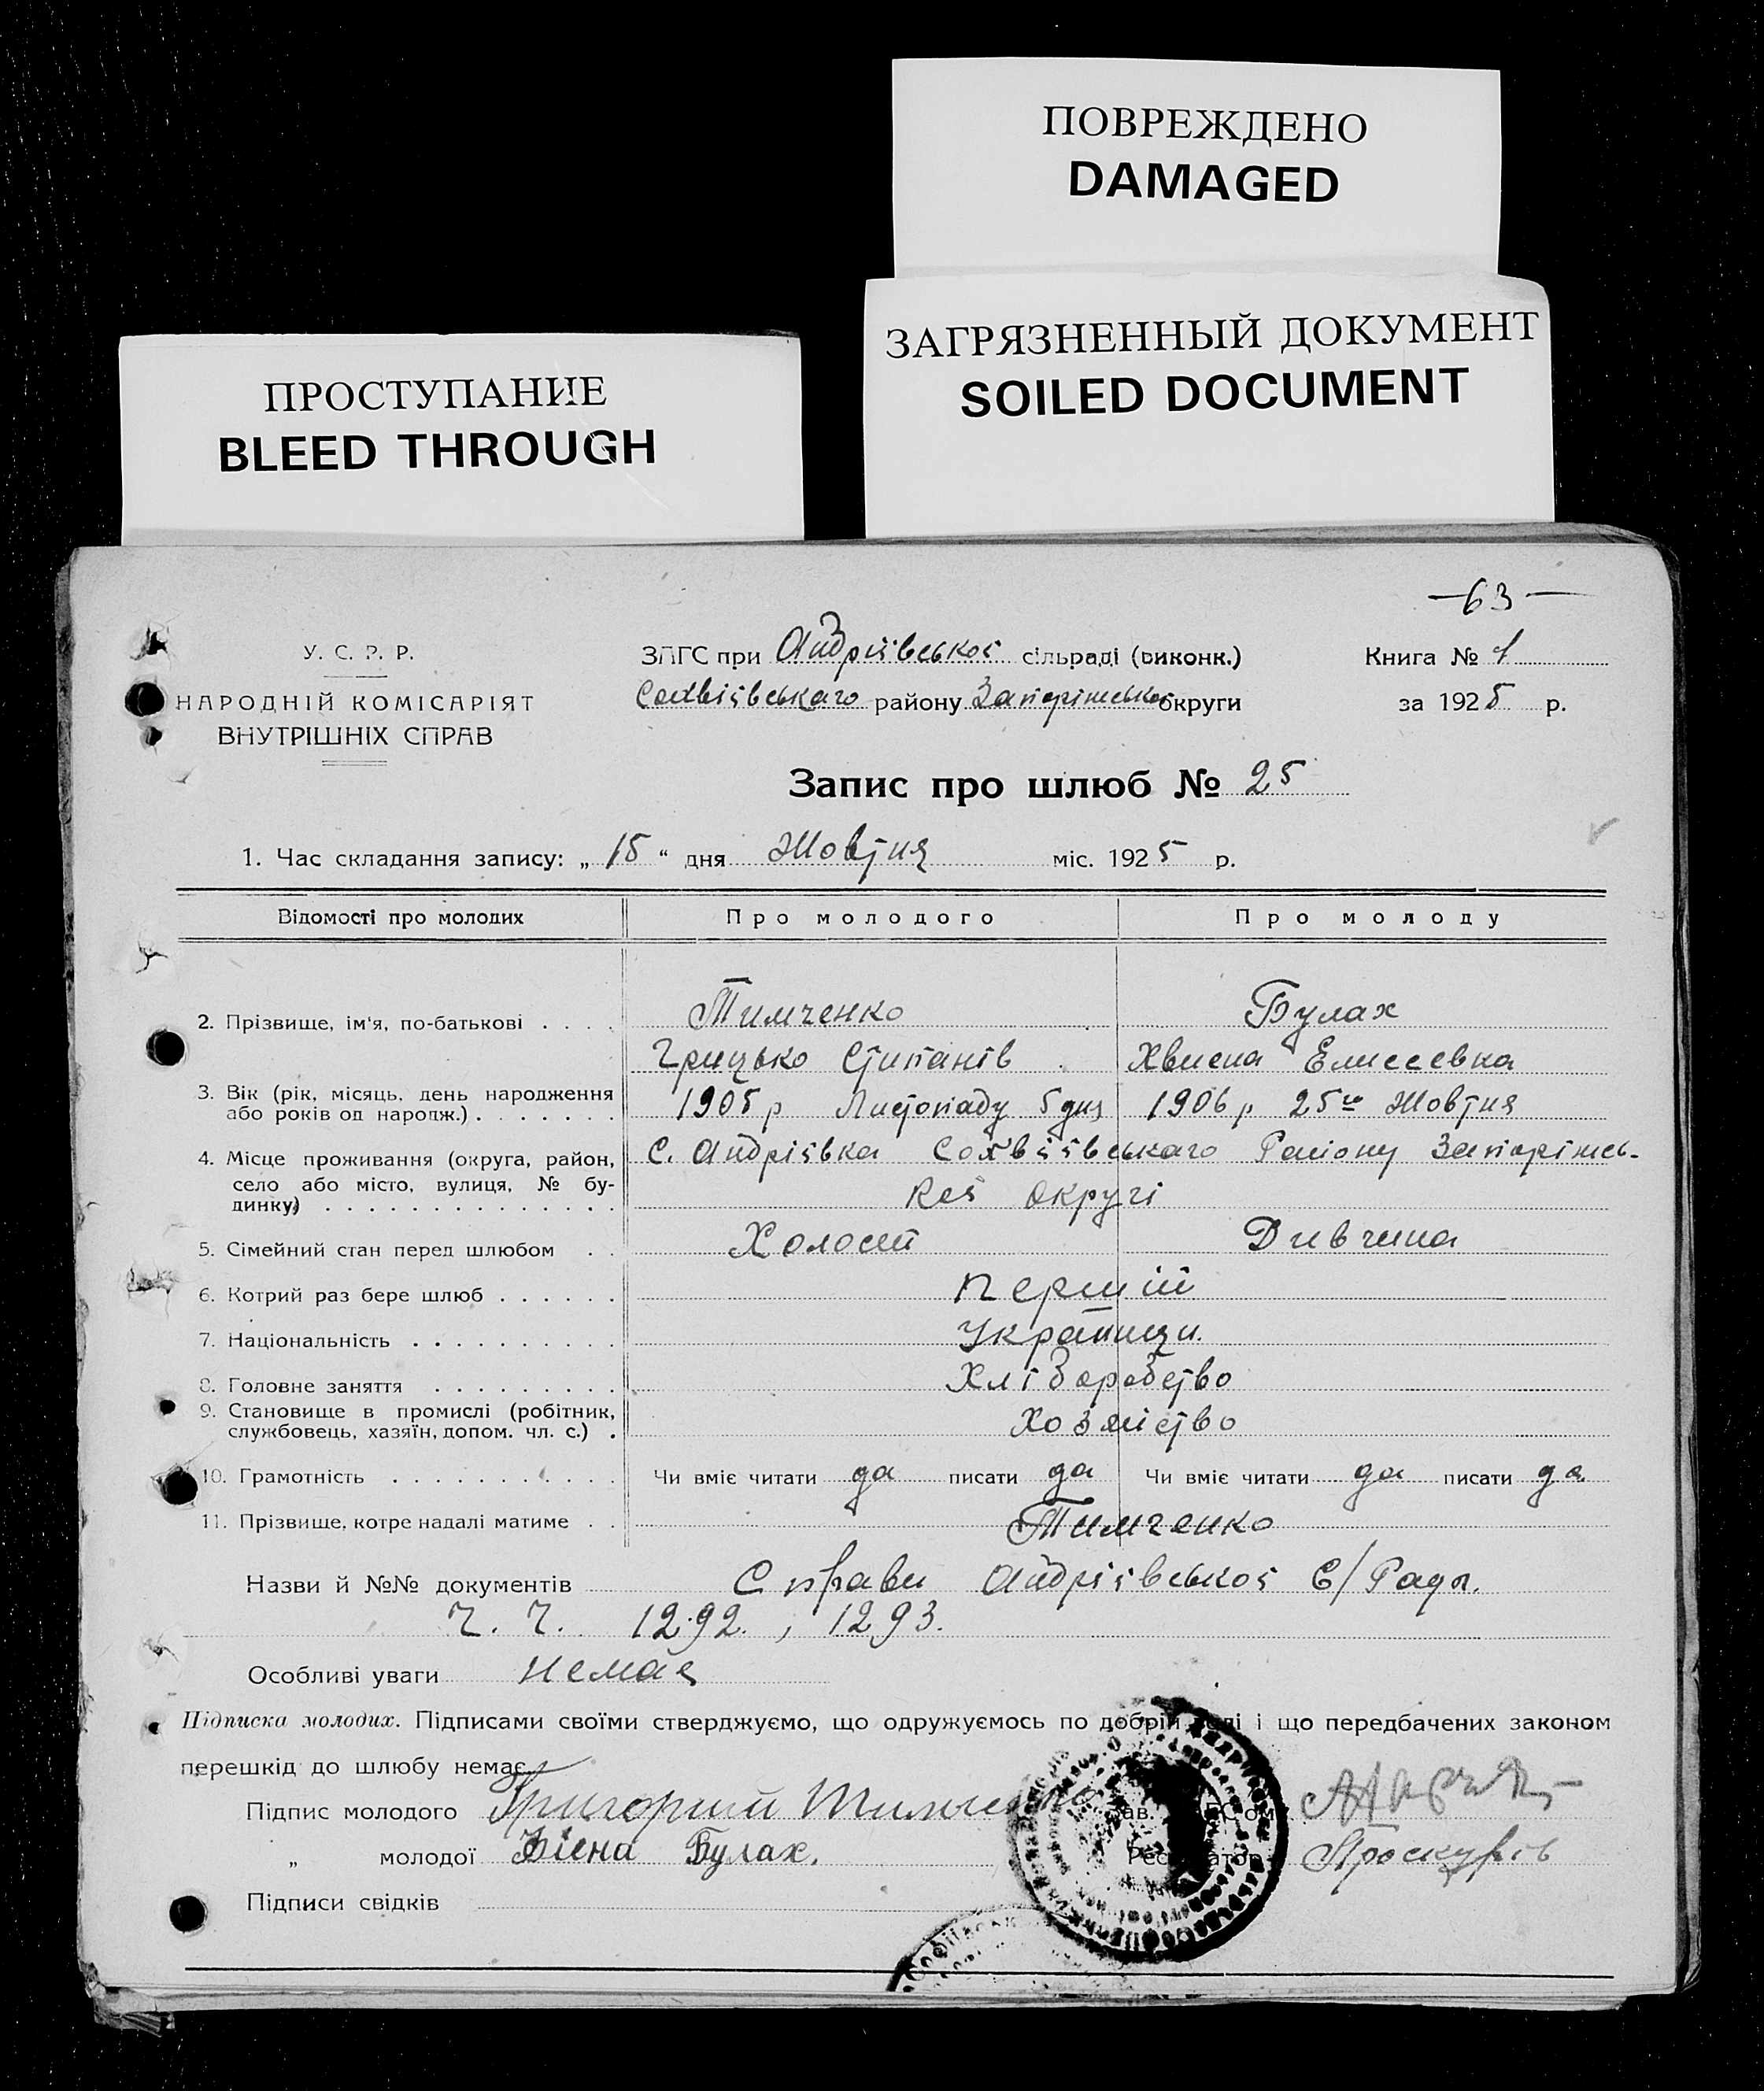 ПОВРЕЖДЕНО
DAMAGED
ЗАГРЯЗНЕННЫЙ ДОКУМЕНТ
SOILED DOCUMENT
ПРОСТУПАНИЕ
BLEED THROUGH
—63—
У. С. Р. Р.
НАРОДНІЙ КОМІСАРІЯТ
ВНУТРІШНІХ СПРАВ
ЗАГС при Андріівськоі сільраді (виконк.)
Софіівського району Запоріжськоі округи
Книга № 1
за 1925 р.
Запис про шлюб № 25
1. Час складання запису: „ 15 “ дня Жовтня міс. 1925 р.
Відомості про молодих Про молодого Про молоду
2. Прізвище, ім'я, по-батькові . . . . Тимченко Булах
Грицько Стипанів Хвиена Елисеевна
3. Вік (рік, місяць, день народження
або років од нарлдж.) . . . . . . . 1905 р Листопаду 5 дня 1906 р. 25го Жовтня
4. Місце проживання (округа, район, С. Андріівка Софіівського Району Запоріжсь-
село або місто, вулиця, № бу-
динку) . . . . . . . . . . . . . . коі округі
5. Сімейний стан перед шлюбом . . Холосій Дивчина
6. Котрий раз бере шлюб . . . . . . першій
7. Національність . . . . . . . . . . Українци.
8. Головне заняття . . . . . . . . . Хліборобство
9. Становище в промислі (робітник,
службовець, хазяїн, допом. чл. с.) . Хозяйство
10. Грамотність . . . . . . . . . . . Чи вміє читати да писати да Чи вміє читати да писати да
11. Прізвище, котре надалі матиме . . Тимченко
Назви й №№ документів Справи Андріівськоі С/Ради.
Ч. Ч. 1292., 1293.
Особливі уваги немає
Підписка молодих. Підписами своїми стверджуємо, що одружуємось по добрій волі і що передбачених законом
перешкід до шлюбу немає.
Підпис молодого Григорий Тимченко Зав. ЗАГС'ом
„ молодої Фіена Булах. Реєстратор Проскурів
Підписи свідків